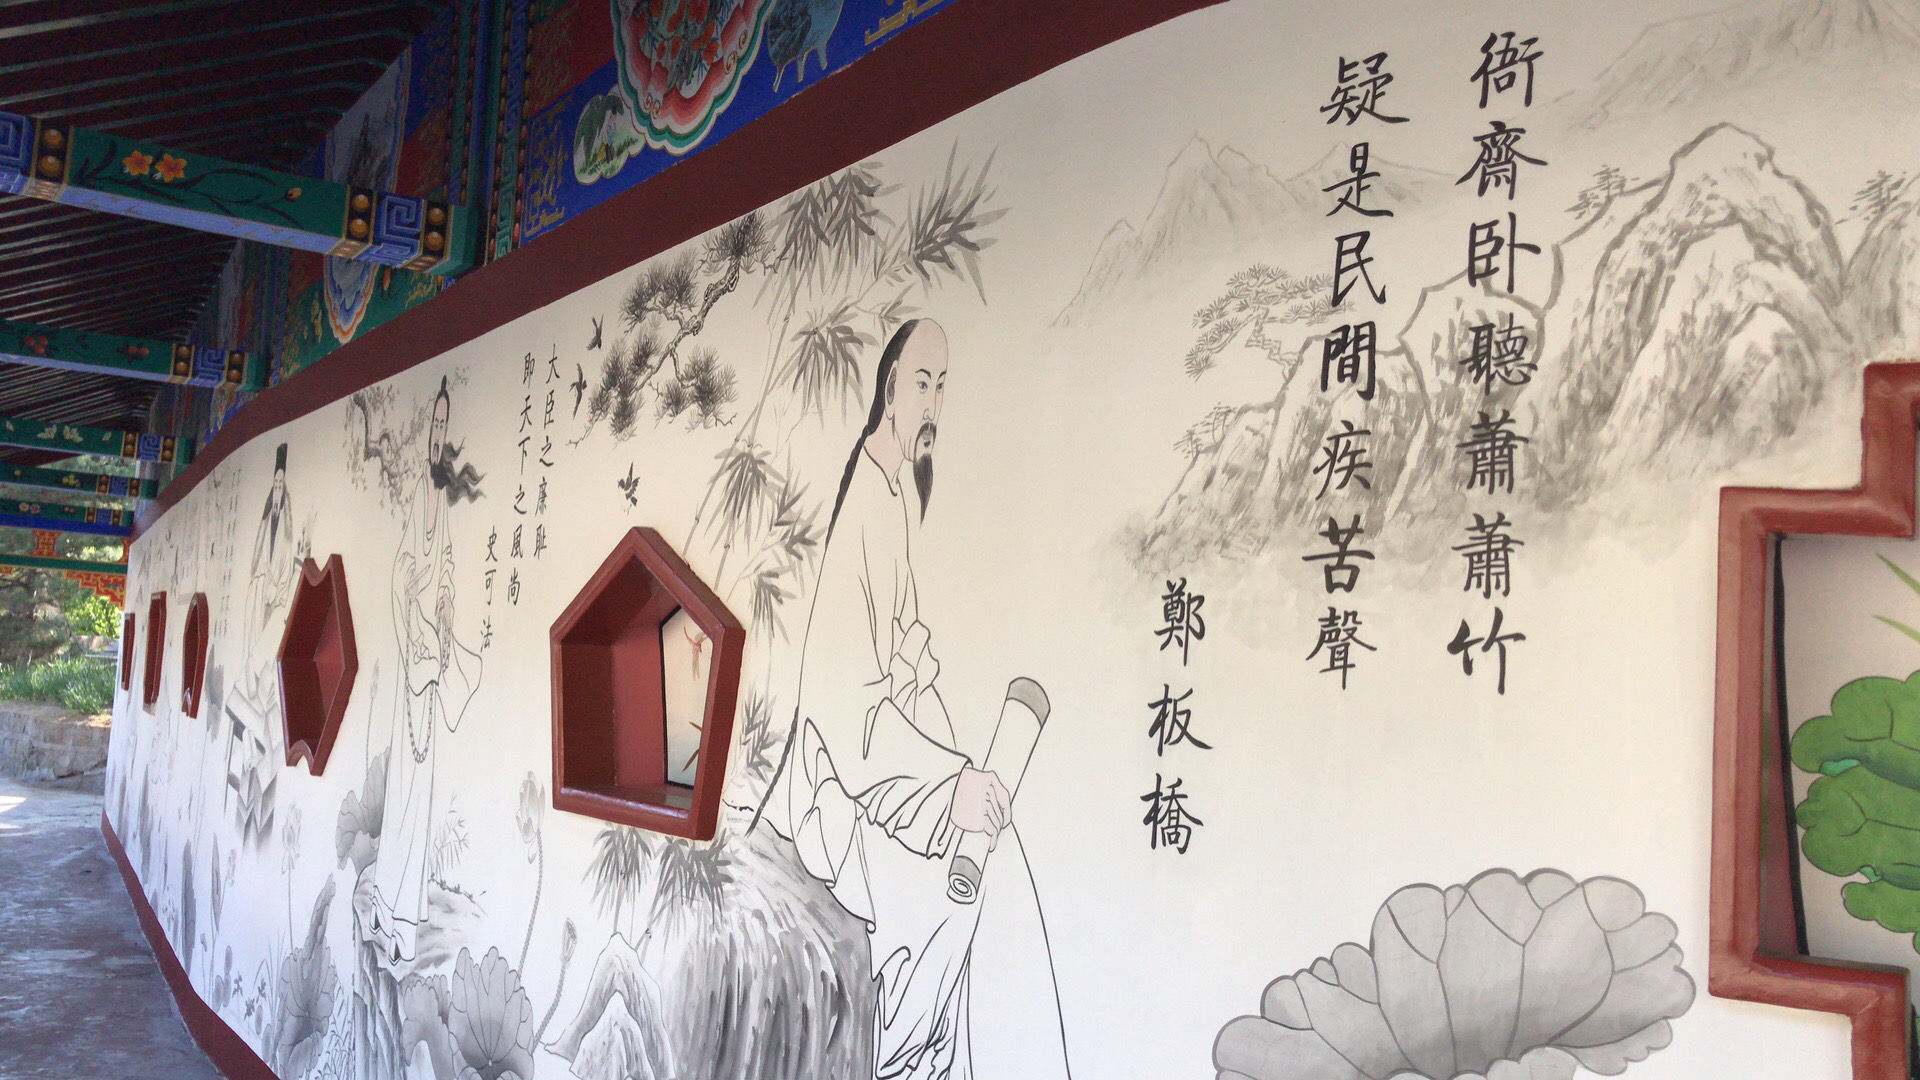 衙齋卧聽蕭蕭竹
疑是民間疾苦聲
鄭板橋
大臣之廉耻
即天下之風尚
史可法